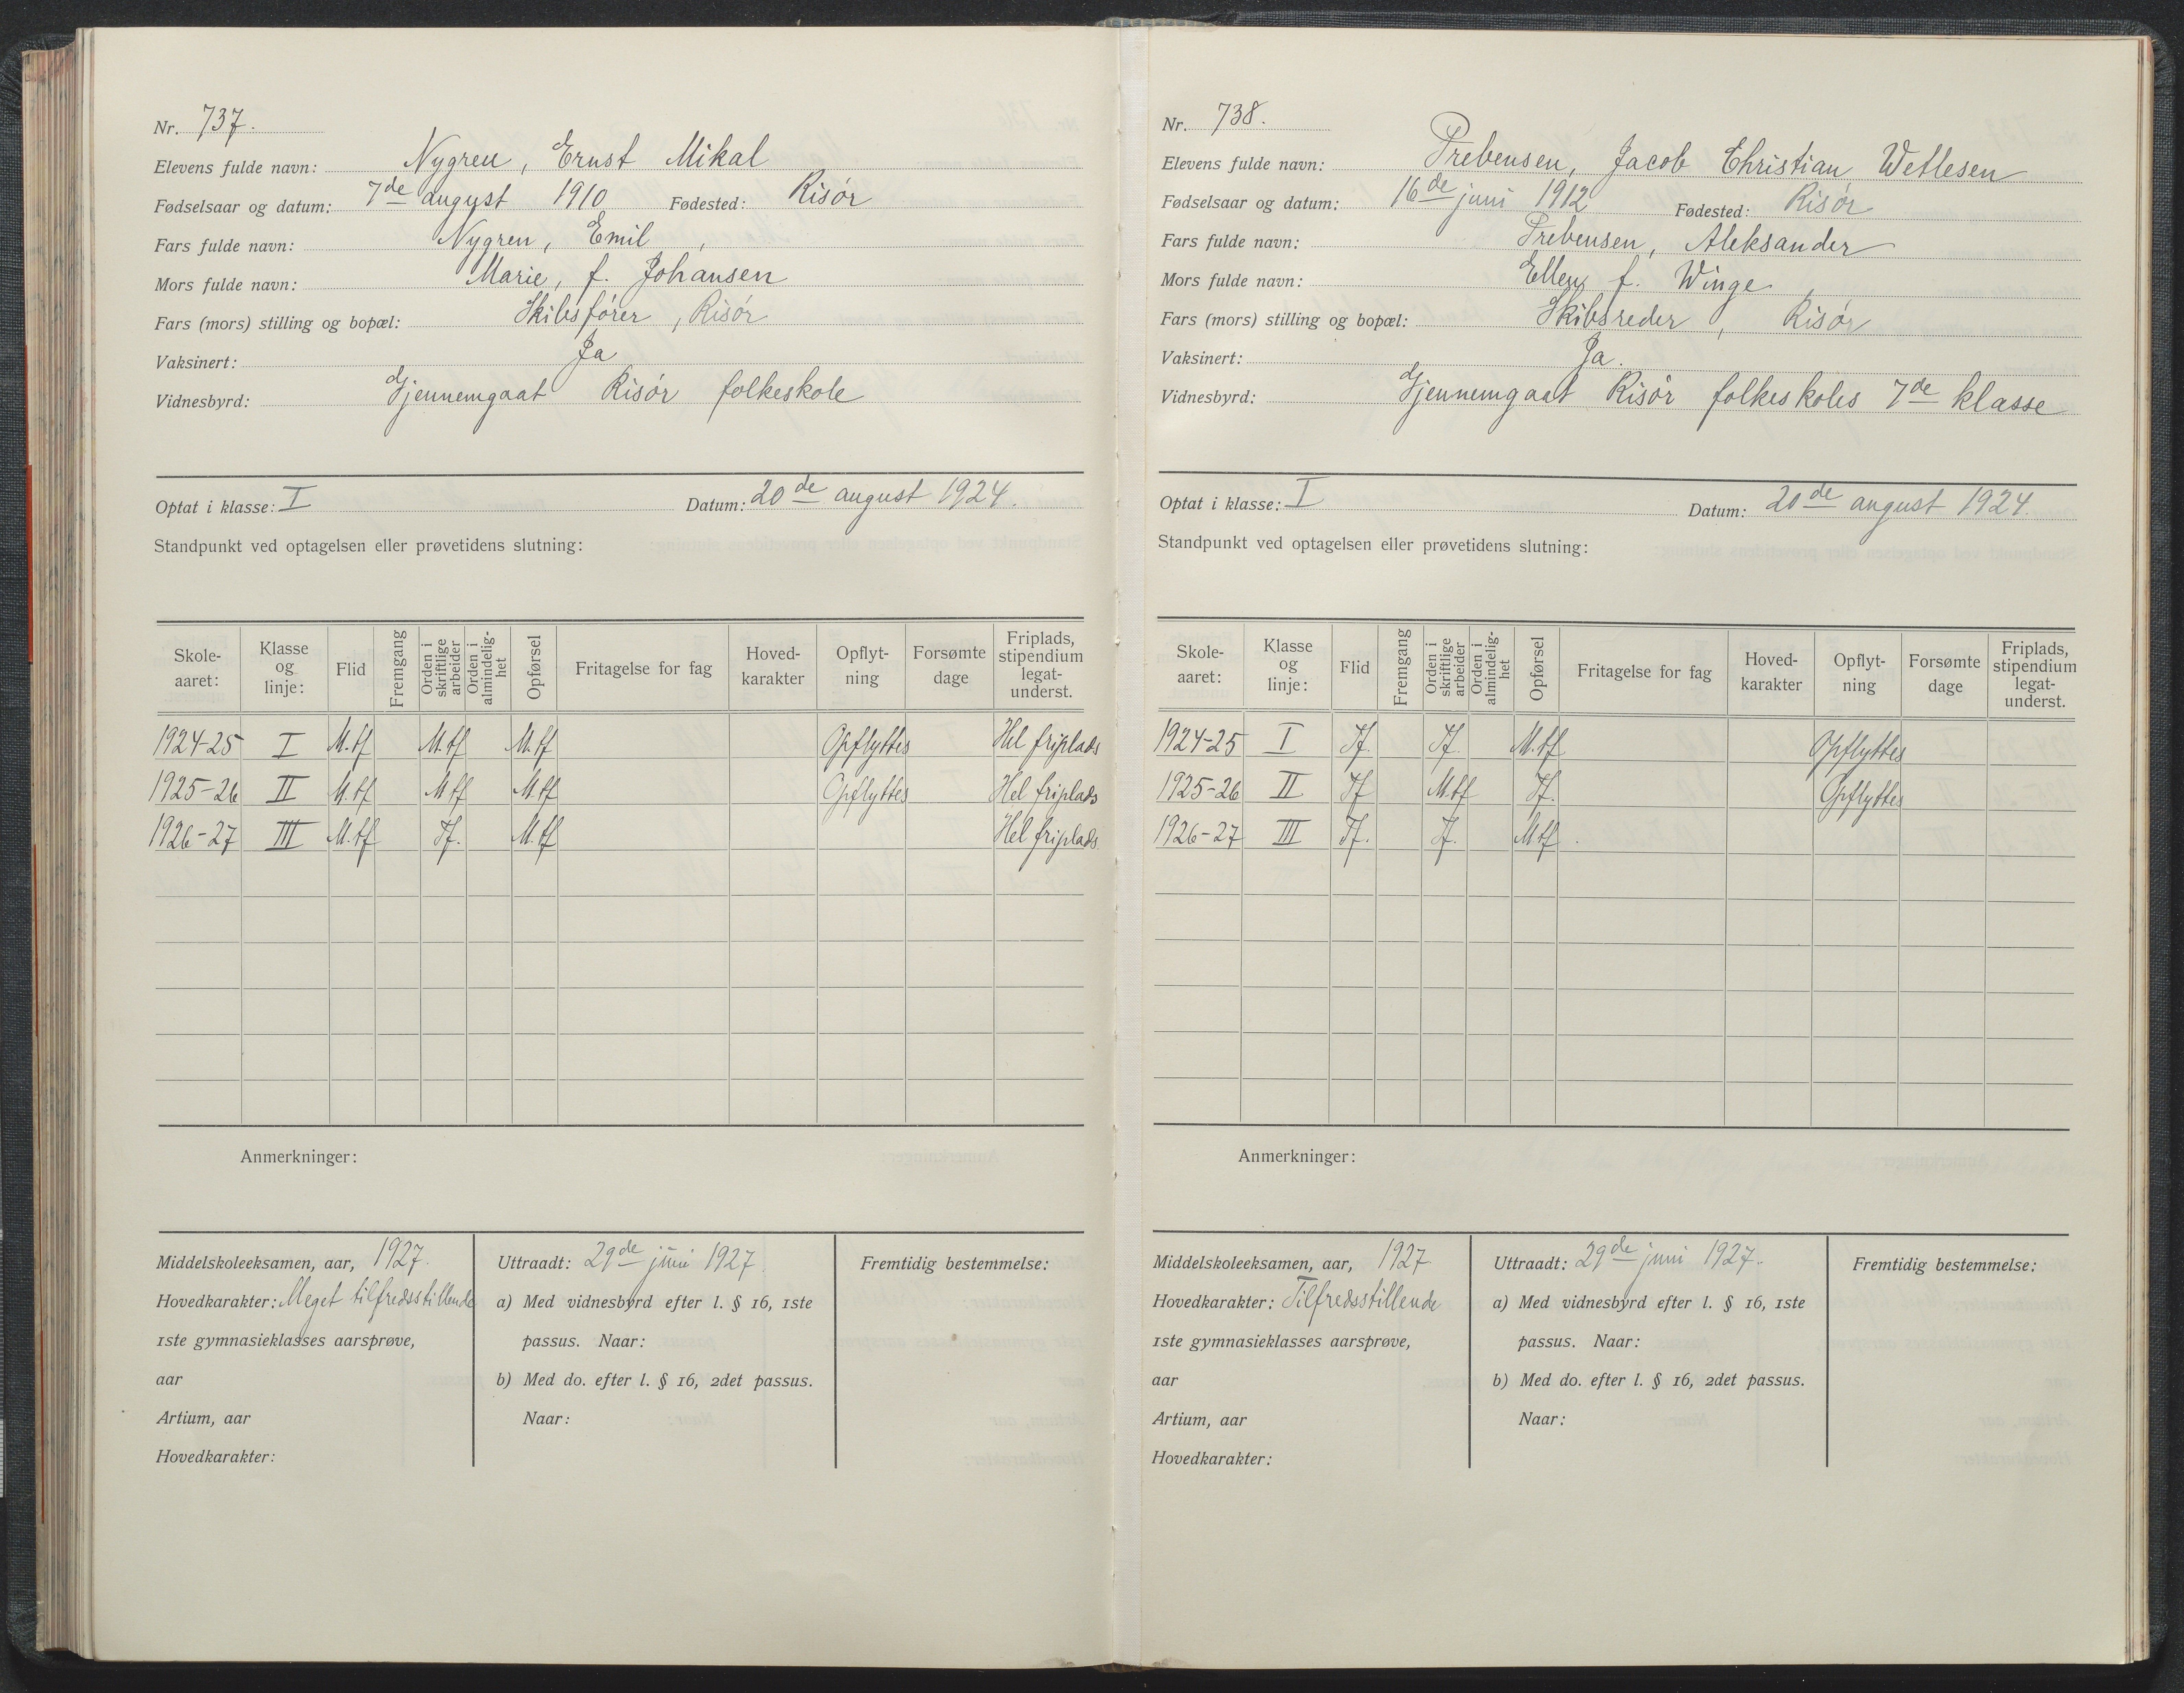 Nr. 737.
Elevens fulde navn: Nygren, Ernst Mikal
Fødselsaar og datum: 7de august 1910 Fødested: Risör
Fars fulde navn: Nygren, Emil,
Mors fulde navn: Marie, f. Johansen
Fars (mors) stilling og bopæl: Skibsförer, Risör
Vaksinert: Ja
Vidnesbyrd: Gjennemgaat Risör folkeskole
Optat i klasse: I Datum: 20de august 1924.
Standpunkt ved optagelsen eller prøvetidens slutning:
Skole-aaret: Klasse og linje: Flid Fremgang Orden i skriftlige arbeider Orden i almindelig-het Opførsel Fritagelse for fag Hoved-karakter Opflyt-ning Forsømte dage Friplads, stipendium legat-underst.
1924-25 I M.tf M.tf M.tf Opflyttes Hel friplads
1925-26 II M.tf M.tf M.tf Opflyttes Hel friplads
1926-27 III M.tf Tf. M.tf Hel friplads
Anmerkninger:
Middelskoleeksamen, aar, 1927.
Hovedkarakter: Meget tilfredsstillende
1ste gymnasieklasses aarsprøve,
aar
Artium, aar
Hovedkarakter:
Uttraadt: 29de juni 1927.
a) Med vidnesbyrd efter l. § 16, 1ste
passus. Naar:
b) Med do. efter l. § 16, 2det passus.
Naar:
Fremtidig bestemmelse:
Nr. 738.
Elevens fulde navn: Prebensen, Jacob Christian Wetlesen
Fødselsaar og datum: 16de juni 1912 Fødested: Risör
Fars fulde navn: Prebensen, Aleksander
Mors fulde navn: Ellen f. Winge
Fars (mors) stilling og bopæl: Skibsreder, Risör
Vaksinert: Ja.
Vidnesbyrd: Gjennemgaat Risör folkeskoles 7de klasse
Optat i klasse: I Datum: 20de august 1924
Standpunkt ved optagelsen eller prøvetidens slutning:
Skole-aaret: Klasse og linje: Flid Fremgang Orden i skriftlige arbeider Orden i almindelig-het Opførsel Fritagelse for fag Hoved-karakter Opflyt-ning Forsømte dage Friplads, stipendium legat-underst.
1924-25 I Tf. Tf. M.tf Opflyttes
1925-26 II Tf M.tf Tf. Opflyttes
1926-27 III Tf. Tf. M.tf.
Anmerkninger:
Middelskoleeksamen, aar, 1927
Hovedkarakter: Tilfredsstillende
1ste gymnasieklasses aarsprøve,
aar
Artium, aar
Hovedkarakter:
Uttraadt: 29de juni 1927.
a) Med vidnesbyrd efter l. § 16, 1ste
passus. Naar:
b) Med do. efter l. § 16, 2det passus.
Naar:
Fremtidig bestemmelse: